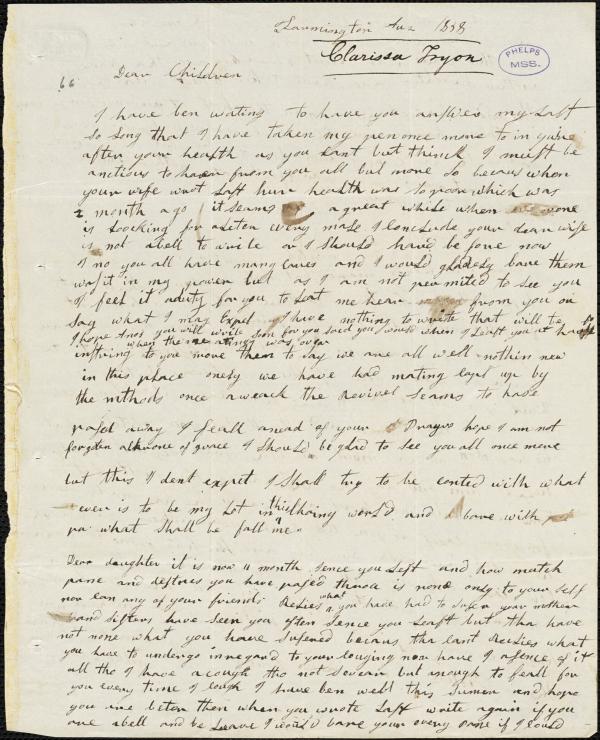 Farmington Aug 1838
Clarissa Tryon
PHELPS
MSS.
66
Dear Children
I have ben wating to have you answer my Last
so Long that I have taken my pen once more to inquire
after your health as you cant but think I must be
anctious to hear from you all but more so becaus when
your wife wrot Last hur health was so poor which was
2 month ago it seams a great while when everone
is Loocking for a Leter every male I Conclude your dear wife
is not abell to write or I should have be fore now
I no you all have many Cares and I would gladely bare them
was it in my power but as I am not permited to see you
I feel it a duty for you to Let me hear from you
say what I may I have nothing to write that will be
I hope you will write soon for you said you would when I Left you at
when the was over
instring to you move then to say we are all well nothin new
in this place only we have had mating up by
the mthods once a weack the Revivel seams to have
pased away I feall anead of your Prayrs hope I am not
forgoten at throne of grace I should be glad to see you all once more
but this I dont expect I shall try to be conted with what
ever is to be my Lot in this world and bare with
what shall be fall me
Dear daughter it is now 11 month sence you Left and how match
pane and destres you have pased throu is none only to your self
nor can any of your friends Reslies what you have had to sufer your mother
and sisters have seen you ofen sence you Leaft but tha have
not none what you have sufered becaus tha cant Reslies what
you have to undergo in regard to your Couging nor have I a sence of it
all tho I have a cough tho not severe but anough to feall for
you every time I cough I have ben well this sumer and hope
you are beter then when you wrote Last write again if you
are abell and be Leave I would bare your every pane if I could